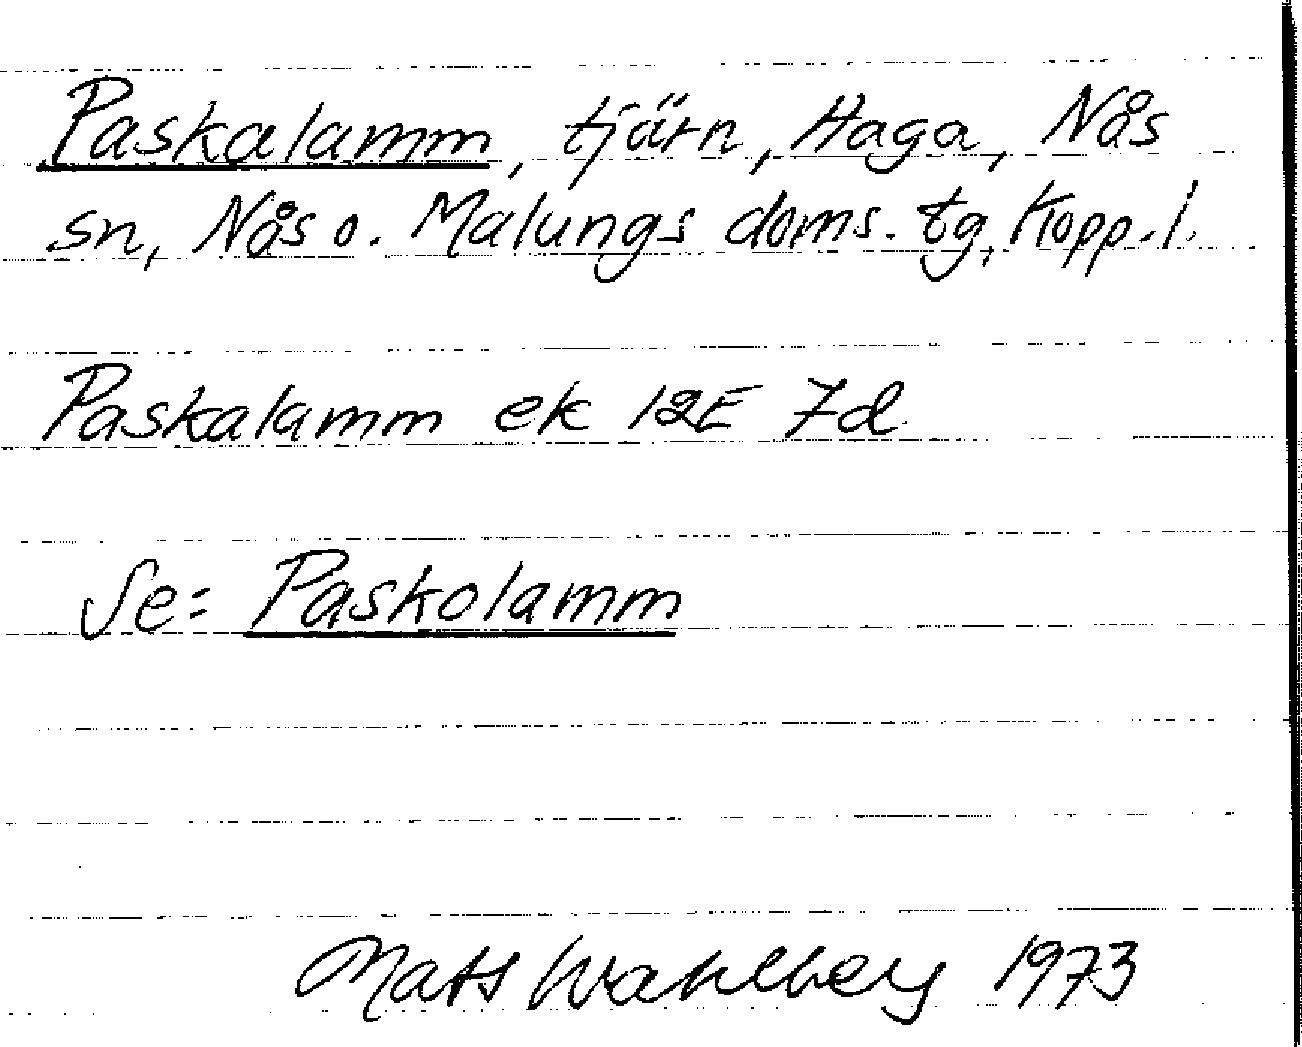 Paskalamm, tjärn, Haga, Nås
sn, Nås o. Malungs doms. tg, Kopp. l.
Paskalamm ek 12E 7d
Se: Paskolamm
Mats Wahlberg 1973